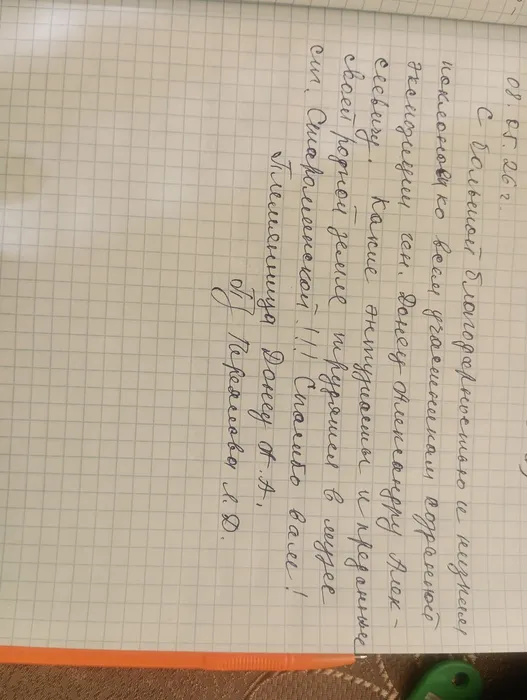 08.05.26г.
С большой благодарностью и низким
поклоном ко всем участникам созданной
экспозиции ген. Донец Александру Алек-
сеевичу. Какие энтузиасты и преданные
своей родной земле трудятся в музее
ст. Староминской!!! Спасибо вам!
Племянница Донец А.А.
Переяслова Л.Д.